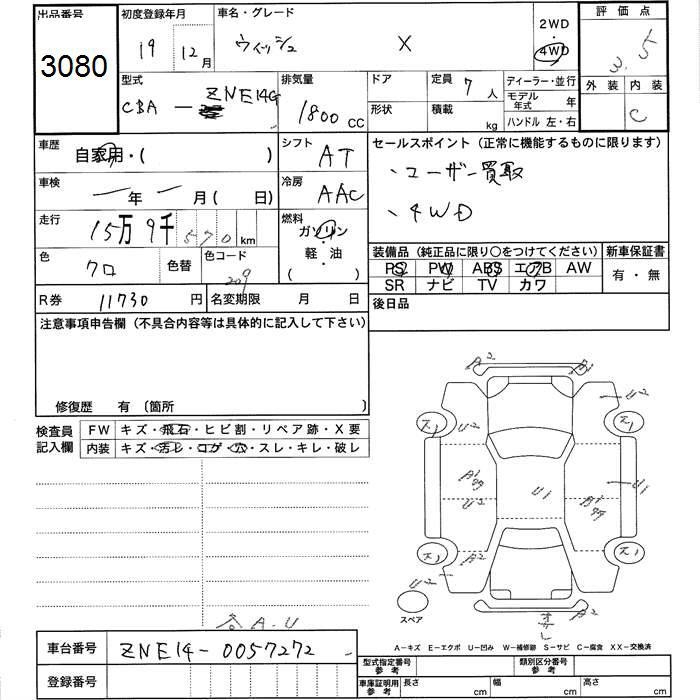 出品番号
3080
初度登録年月
19 12月
車名・グレード
ウィッシュ X
2WD
・
4WD
評価点
3.5
外装 内装
C
型式
CBA — ZNE14G
排気量
1800 CC
ドア
形状
定員 7人
積載 kg
ディーラー・並行
モデル年式 年
ハンドル 左・右
車歴
自家用・( )
車検
年 月( 日)
走行
15万9千570km
色
クロ
色替
色コード
209
シフト
AT
冷房
AAC
燃料
ガソリン
軽・油
( )
R券 11730円
名変期限 月 日
セールスポイント(正常に機能するものに限ります)
、ユーザー買取
、4WD
装備品(純正品に限り○をつけてください)
PS PW ABS エアB AW
SR ナビ TV カワ
新車保証書
有・無
後日品
注意事項申告欄(不具合内容等は具体的に記入して下さい)
修復歴 有〔箇所 〕
検査員記入欄
FW キズ・飛石・ヒビ割・リペア跡・X要
内装 キズ・汚レ・コゲ・穴・スレ・キレ・破レ
A2 A1
U2
ス1 U2 ス1
A1 U2 U1 A1 U1
ス1 A2 ス1
U2
スペア
A2
A-キズ E-エクボ U-凹み W-補修跡 S-サビ C-腐食 XX-交換済
A.U
車台番号 ZNE14-0057272
登録番号
型式指定番号参考
類別区分番号参考
車庫証明用参考 長さ cm 幅 cm 高さ cm